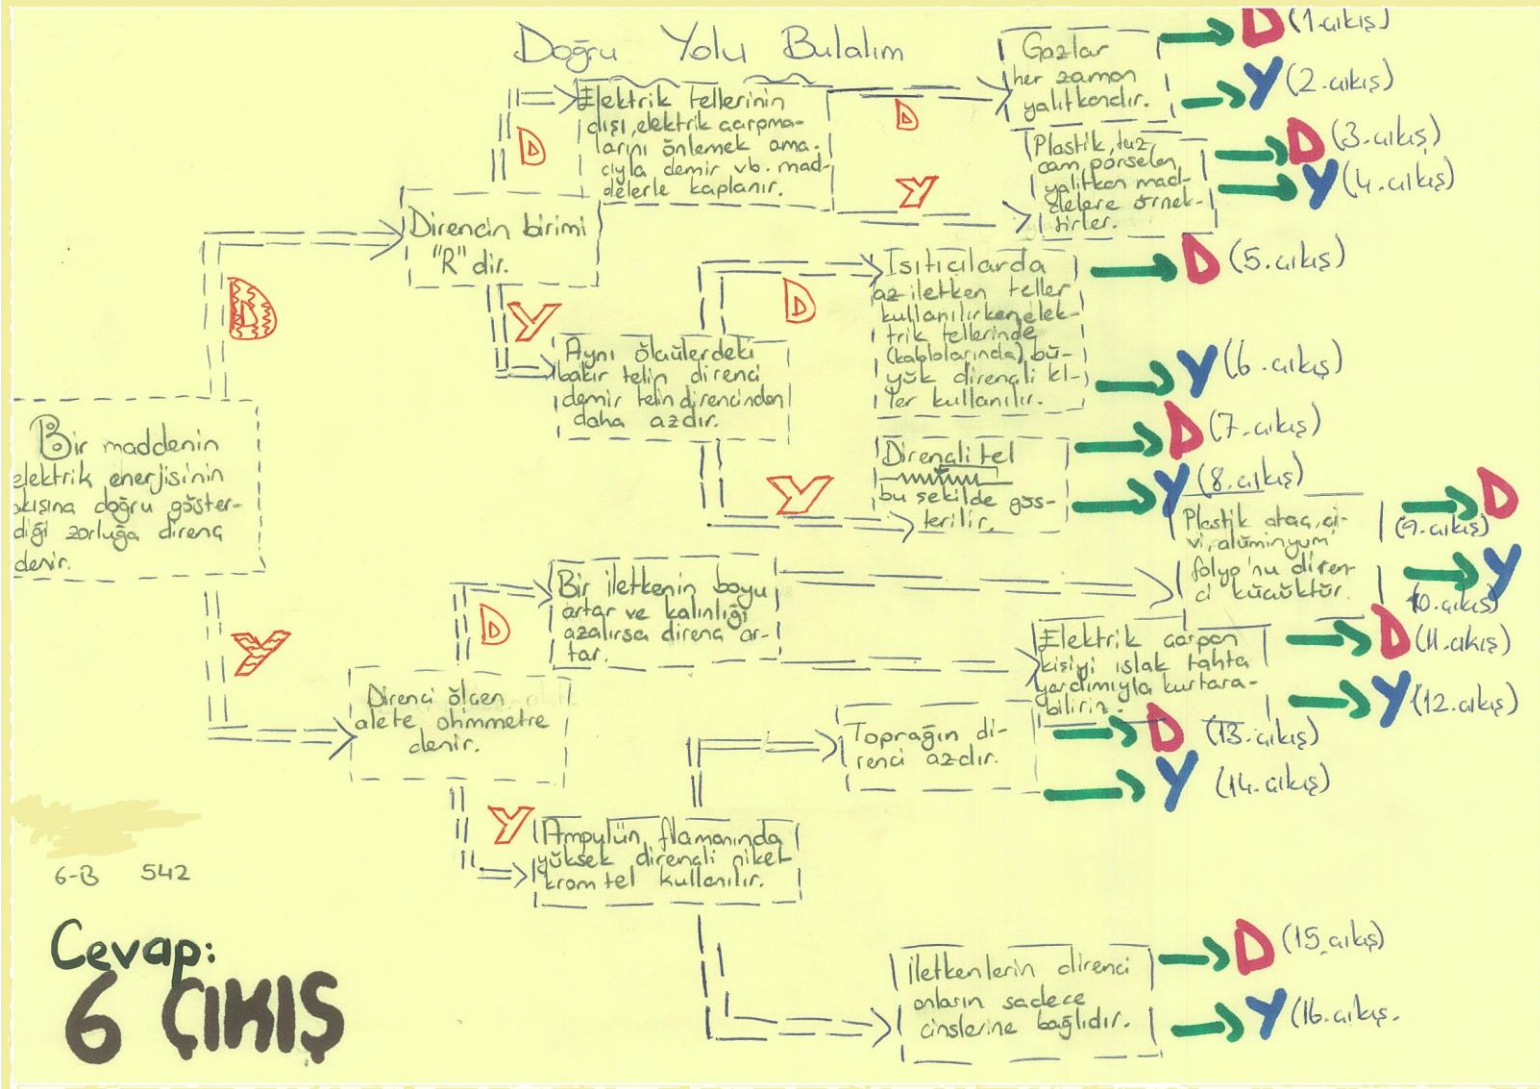 Doğru Yolu Bulalım
Bir maddenin
elektrik enerjisinin
akışına doğru göster-
diği zorluğa direnç
denir.
D
Y
Direncin birimi
"R" dir.
D
Y
Elektrik tellerinin
dışı, elektrik çarpma-
larını önlemek ama-
cıyla demir vb. mad-
delerle kaplanır.
D
Y
Gazlar
her zaman
yalıtkandır.
D (1. çıkış)
Y (2. çıkış)
Plastik, tuz,
cam, porselen,
yalıtkan mad-
delere örnek-
tirler.
D (3. çıkış)
Y (4. çıkış)
Aynı ölçülerdeki
bakır telin direnci
demir telin direncinden
daha azdır.
D
Y
Isıtıcılarda
az iletken teller
kullanılırken, elek-
trik tellerinde
(kablolarında) bü-
yük dirençli
ler kullanılır.
D (5. çıkış)
Y (6. çıkış)
Dirençli tel
bu şekilde gös-
terilir.
D (7. çıkış)
Y (8. çıkış)
Direnci ölçen
alete ohmmetre
denir.
D
Y
Bir iletkenin boyu
artar ve kalınlığı
azalırsa direnç ar-
tar.
Plastik ataç, çi-
vi, alüminyum
folyo'nu diren-
ci küçüktür.
D
(9. çıkış)
Y
(10. çıkış)
Elektrik çarpan
kişiyi ıslak tahta
yardımıyla kurtara-
biliriz.
D (11. çıkış)
Y (12. çıkış)
Ampulün flamanında
yüksek dirençli nikel
krom tel kullanılır.
Toprağın di-
renci azdır.
D (13. çıkış)
Y (14. çıkış)
İletkenlerin direnci
onların sadece
cinslerine bağlıdır.
D (15. çıkış)
Y (16. çıkış.
6-B 542
Cevap:
6 ÇIKIŞ